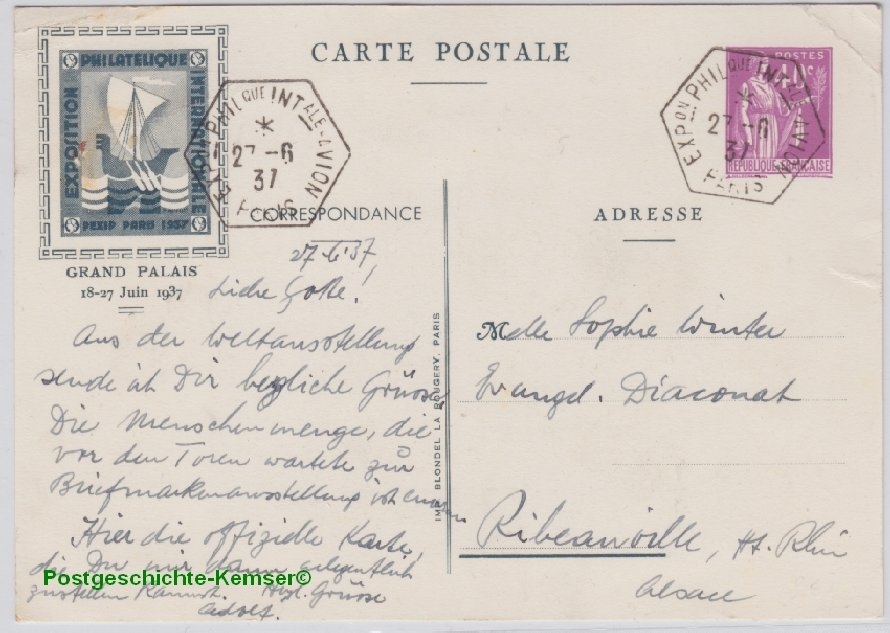 CARTE POSTALE
EXPOSITION PHILATÉLIQUE INTERNATIONALE
PEXIP PARIS 1937
GRAND PALAIS
18-27 Juin 1937
EXPon PHILque INTALE-AVION
*
27-6
37
PARIS
POSTES
RÉPUBLIQUE FRANÇAISE
EXPon PHILque INTALE AVION
*
27-6
37
PARIS
CORRESPONDANCE
27-6 37
Liebe Gotte!
Aus der Weltausstellung
sende ich Dir herzliche Grüsse
Die Menschenmenge, die
vor den Toren wartete zur
Briefmarkenausstellung ist enorm
Hier die offizielle Karte,
die Du mir dann gelegentlich
zustellen kannst. Hrzl. Grüsse
Adolf.
IMP. BLONDEL LA ROUGERY, PARIS
ADRESSE
Mdlle Sophie Winter
Evangel. Diaconat
Ribeauville, Ht. Rhin
Alsace
Postgeschichte-Kemser©